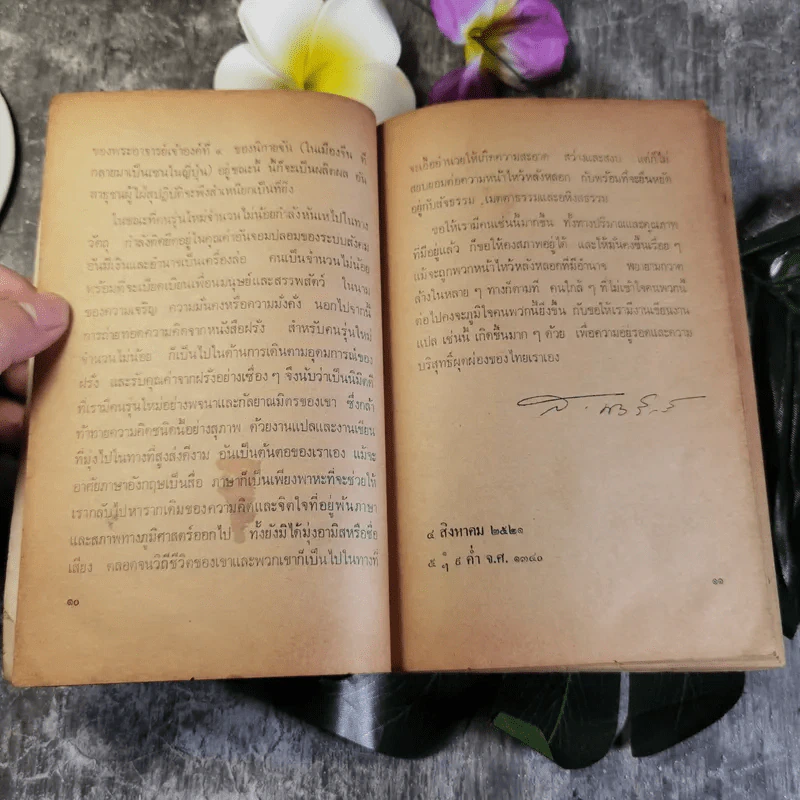 ของพระอาจารย์เจ้าองค์ที่ ๑ ของนิกายจัน (ในเมืองจีน ที่
กลายมาเป็นเซนในญี่ปุ่น) อยู่ขณะนี้ นี้ก็จะเป็นผลิตผล อัน
สาธุชนผู้ใฝ่สุปฏิบัติจะพึงสำเหนียกเป็นที่ยิ่ง
ในขณะที่คนรุ่นใหม่จำนวนไม่น้อยกำลังหันเหไปในทาง
วัตถุ กำลังติดยึดอยู่ในคุณค่าอันจอมปลอมของระบบสังคม
อันมีเงินและอำนาจเป็นเครื่องล่อ คนเป็นจำนวนไม่น้อย
พร้อมที่จะเบียดเบียนเพื่อนมนุษย์และสรรพสัตว์ ในนาม
ของความเจริญ ความมั่นคงหรือความมั่งคั่ง นอกไปจากนี้
การถ่ายทอดความคิดจากหนังสือฝรั่ง สำหรับคนรุ่นใหม่
จำนวนไม่น้อย ก็เป็นไปในด้านการเดินตามอุดมการณ์ของ
ฝรั่ง และรับคุณค่าจากฝรั่งอย่างเซื่อง ๆ จึงนับว่าเป็นนิมิตดี
ที่เรามีคนรุ่นใหม่อย่างพจนาและกัลยาณมิตรของเขา ซึ่งกล้า
ท้าทายความคิดชนิดนี้อย่างสุภาพ ด้วยงานแปลและงานเขียน
ที่มุ่งไปในทางที่สูงส่งดีงาม อันเป็นต้นตอของเราเอง แม้จะ
อาศัยภาษาอังกฤษเป็นสื่อ ภาษาก็เป็นเพียงพาหะที่จะช่วยให้
เรากลับไปหารากเดิมของความคิดและจิตใจที่อยู่พ้นภาษา
และสภาพทางภูมิศาสตร์ออกไป ทั้งยังมิได้มุ่งอามิสหรือชื่อ
เสียง ตลอดจนวิถีชีวิตของเขาและพวกเขาก็เป็นไปในทางที่
๑๐
จะเอื้ออำนวยให้เกิดความสะอาด สว่างและสงบ แต่ก็ไม่
สยบยอมต่อความหน้าไหว้หลังหลอก กับพร้อมที่จะยืนหยัด
อยู่กับสัจธรรม เมตตาธรรมและอหิงสธรรม
ขอให้เรามีคนเช่นนี้มากขึ้น ทั้งทางปริมาณและคุณภาพ
ที่มีอยู่แล้ว ก็ขอให้คงสภาพอยู่ได้ และให้มั่นคงขึ้นเรื่อย ๆ
แม้จะถูกพวกหน้าไหว้หลังหลอกที่มีอำนาจ พยายามกวาด
ล้างในหลาย ๆ ทางก็ตามที คนใกล้ ๆ ที่ไม่เข้าใจคนพวกนี้
ต่อไปคงจะภูมิใจคนพวกนี้ยิ่งขึ้น กับขอให้เรามีงานเขียนงาน
แปล เช่นนี้ เกิดขึ้นมาก ๆ ด้วย เพื่อความอยู่รอดและความ
บริสุทธิ์ผุดผ่องของไทยเราเอง
๔ สิงหาคม ๒๕๒๑
๕ ๆ ๙ ค่ำ จ.ศ. ๑๓๔๐
๑๑